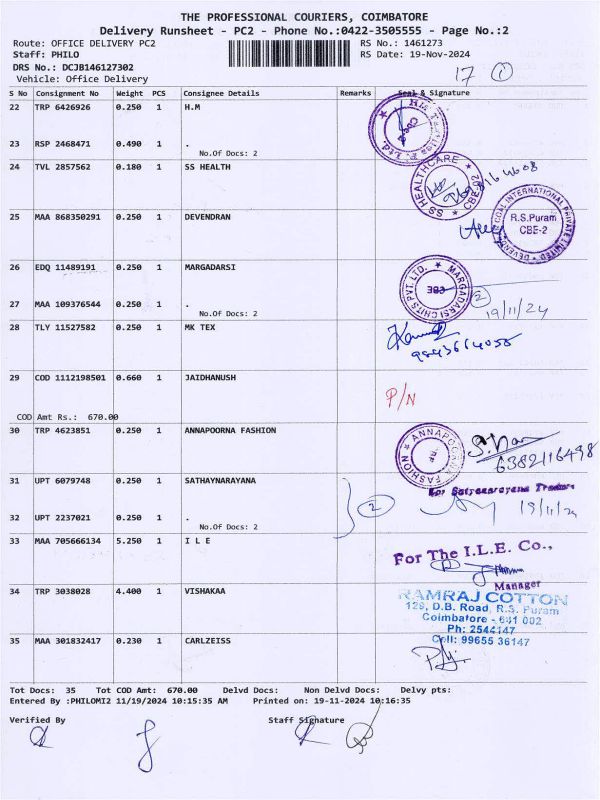 THE PROFESSIONAL COURIERS, COIMBATORE
Delivery Runsheet - PC2 - Phone No.:0422-3505555 - Page No.:2
Route: OFFICE DELIVERY PC2 RS No.: 1461273
Staff: PHILO RS Date: 19-Nov-2024
DRS No.: DCJB146127302
Vehicle: Office Delivery
17 1
S No Consignment No Weight PCS Consignee Details Remarks Seal & Signature
22 TRP 6426926 0.250 1 H.M
23 RSP 2468471 0.490 1 .
No.Of Docs: 2
24 TVL 2857562 0.180 1 SS HEALTH
SS HEALTHCARE CBE-02
25 MAA 868350291 0.250 1 DEVENDRAN
DEVENDRAN COAL INTERNATIONAL PRIVATE LIMITED
R.S.Puram
CBE-2
26 EDQ 11489191 0.250 1 MARGADARSI
MARGADARSI CHITS PVT. LTD.
383
2
27 MAA 109376544 0.250 1 .
No.Of Docs: 2
19/11/24
28 TLY 11527582 0.250 1 MK TEX
29 COD 1112198501 0.660 1 JAIDHANUSH
P/N
COD Amt Rs.: 670.00
30 TRP 4623851 0.250 1 ANNAPOORNA FASHION
ANNAPOORNA FASHION
6382116498
31 UPT 6079748 0.250 1 SATHAYNARAYANA
For Satyanarayana Traders
2
19/11/24
32 UPT 2237021 0.250 1 .
No.Of Docs: 2
33 MAA 705666134 5.250 1 I L E
For The I.L.E. Co.,
Manager
34 TRP 3038028 4.400 1 VISHAKAA
RAMRAJ COTTON
129, D.B. Road, R.S. Puram
Coimbatore - 641 002
Ph: 2544147
Cell: 99655 36147
35 MAA 301832417 0.230 1 CARLZEISS
Tot Docs: 35 Tot COD Amt: 670.00 Delvd Docs: Non Delvd Docs: Delvy pts:
Entered By :PHILOMI2 11/19/2024 10:15:35 AM Printed on: 19-11-2024 10:16:35
Verified By Staff Signature